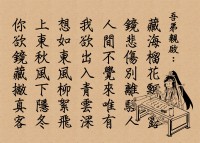 吾弟親啟：
藏海榴花露
鏡悲傷別離騷人
人間不覺來唯有
我欲出入青雲深
想如東風柳絮飛
上東秋風下隱冬
你欲鏡藏撇真客